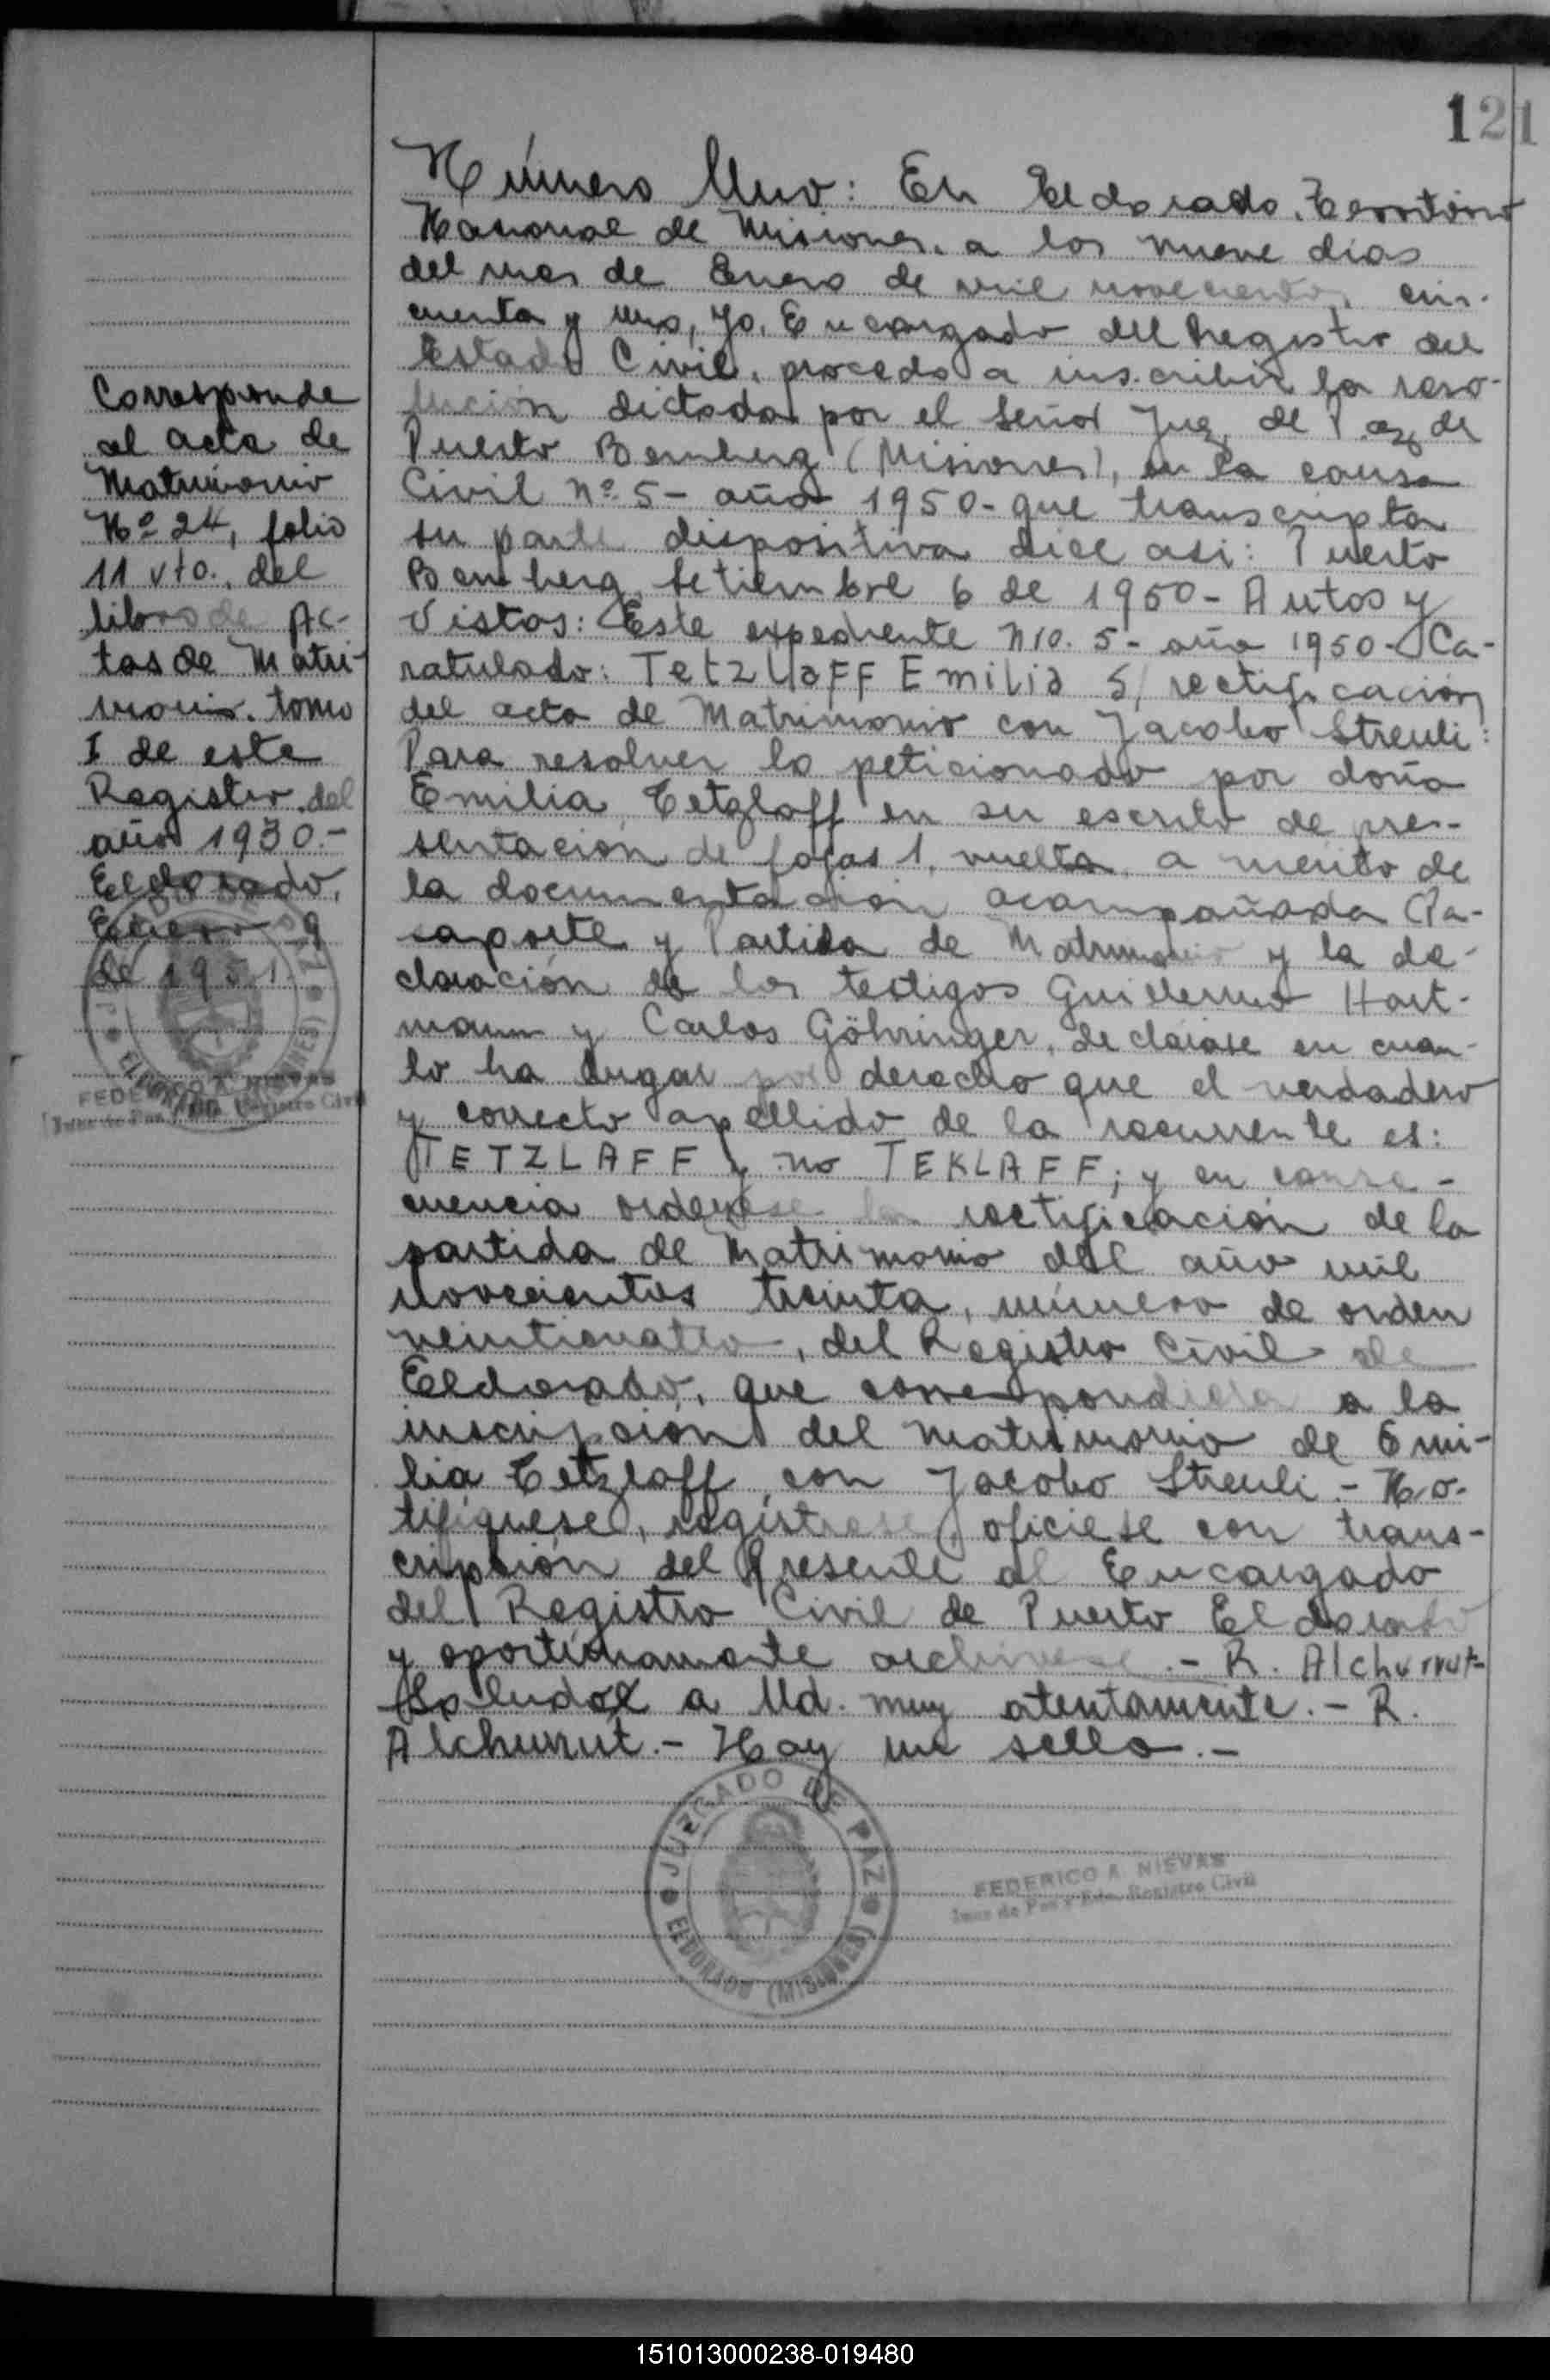 121
Número Uno: En Eldorado, Territorio
Nacional de Misiones, a los nueve dias
del mes de Enero de mil novecientos cin-
cuenta y uno, yo, Encargado del Registro del
Estado Civil, procedo a inscribir la reso-
lución dictada por el Señor Juez de Paz de
Puerto Bemberg (Misiones), en la causa
Civil Nº 5 - año 1950 - que transcripta
su parte dispositiva dice asi: Puerto
Bemberg, Setiembre 6 de 1950 - Autos y
Vistos: Este expediente nro. 5 - año 1950 - Ca-
ratulado: Tetzlaff Emilia s/ rectificación
del acta de Matrimonio con Jacobo Streuli:
Para resolver lo peticionado por doña
Emilia Tetzlaff en su escrito de pre-
sentación de fojas 1, vuelta, a merito de
la documentación acompañada (Pa-
saporte y Partida de Matrimonio y la de-
claración de los testigos Guillermo Hart-
mann y Carlos Göhringer, declárase en cuan-
to ha lugar por derecho que el verdadero
y correcto apellido de la recurrente es:
TETZLAFF y no TEKLAFF; y en conse-
cuencia ordenese la rectificación de la
partida de Matrimonio del año mil
novecientos treinta, número de orden
veinticuatro, del Registro Civil de
Eldorado, que correspondiera a la
inscripción del matrimonio de Emi-
lia Tetzlaff con Jacobo Streuli - No-
tifiquese, registrese, oficiese con trans-
cripción del presente al Encargado
del Registro Civil de Puerto Eldorado
y oportunamente archivese. - R. Alchurrut -
Saludole a Ud. muy atentamente. - R.
Alchurrut. - Hay un sello. -
Corresponde
al acta de
Matrimonio
Nº 24, folio
11 vto., del
libro de Ac-
tas de Matri-
monio. tomo
I de este
Registro del
año 1930.-
Eldorado,
Enero 9
de 1951.
FEDERICO A. NIEVAS
Juez de Paz y Edo. Registro Civil
JUZGADO DE PAZ
ELDORADO (MISIONES)
FEDERICO A. NIEVAS
Juez de Paz y Edo. Registro Civil
JUZGADO DE PAZ
ELDORADO (MISIONES)
151013000238-019480